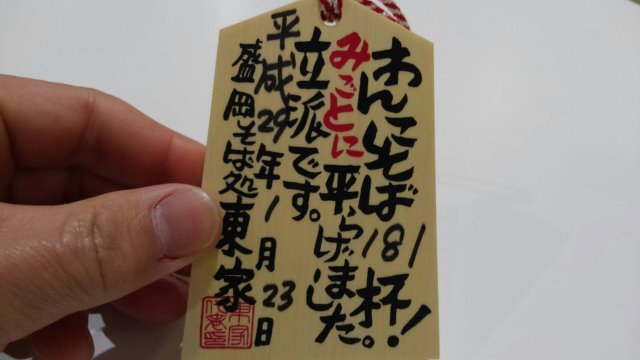 わんこそば181杯!
みごとに平らげました。
立派です。
平成29年1月23日
盛岡そば処東家